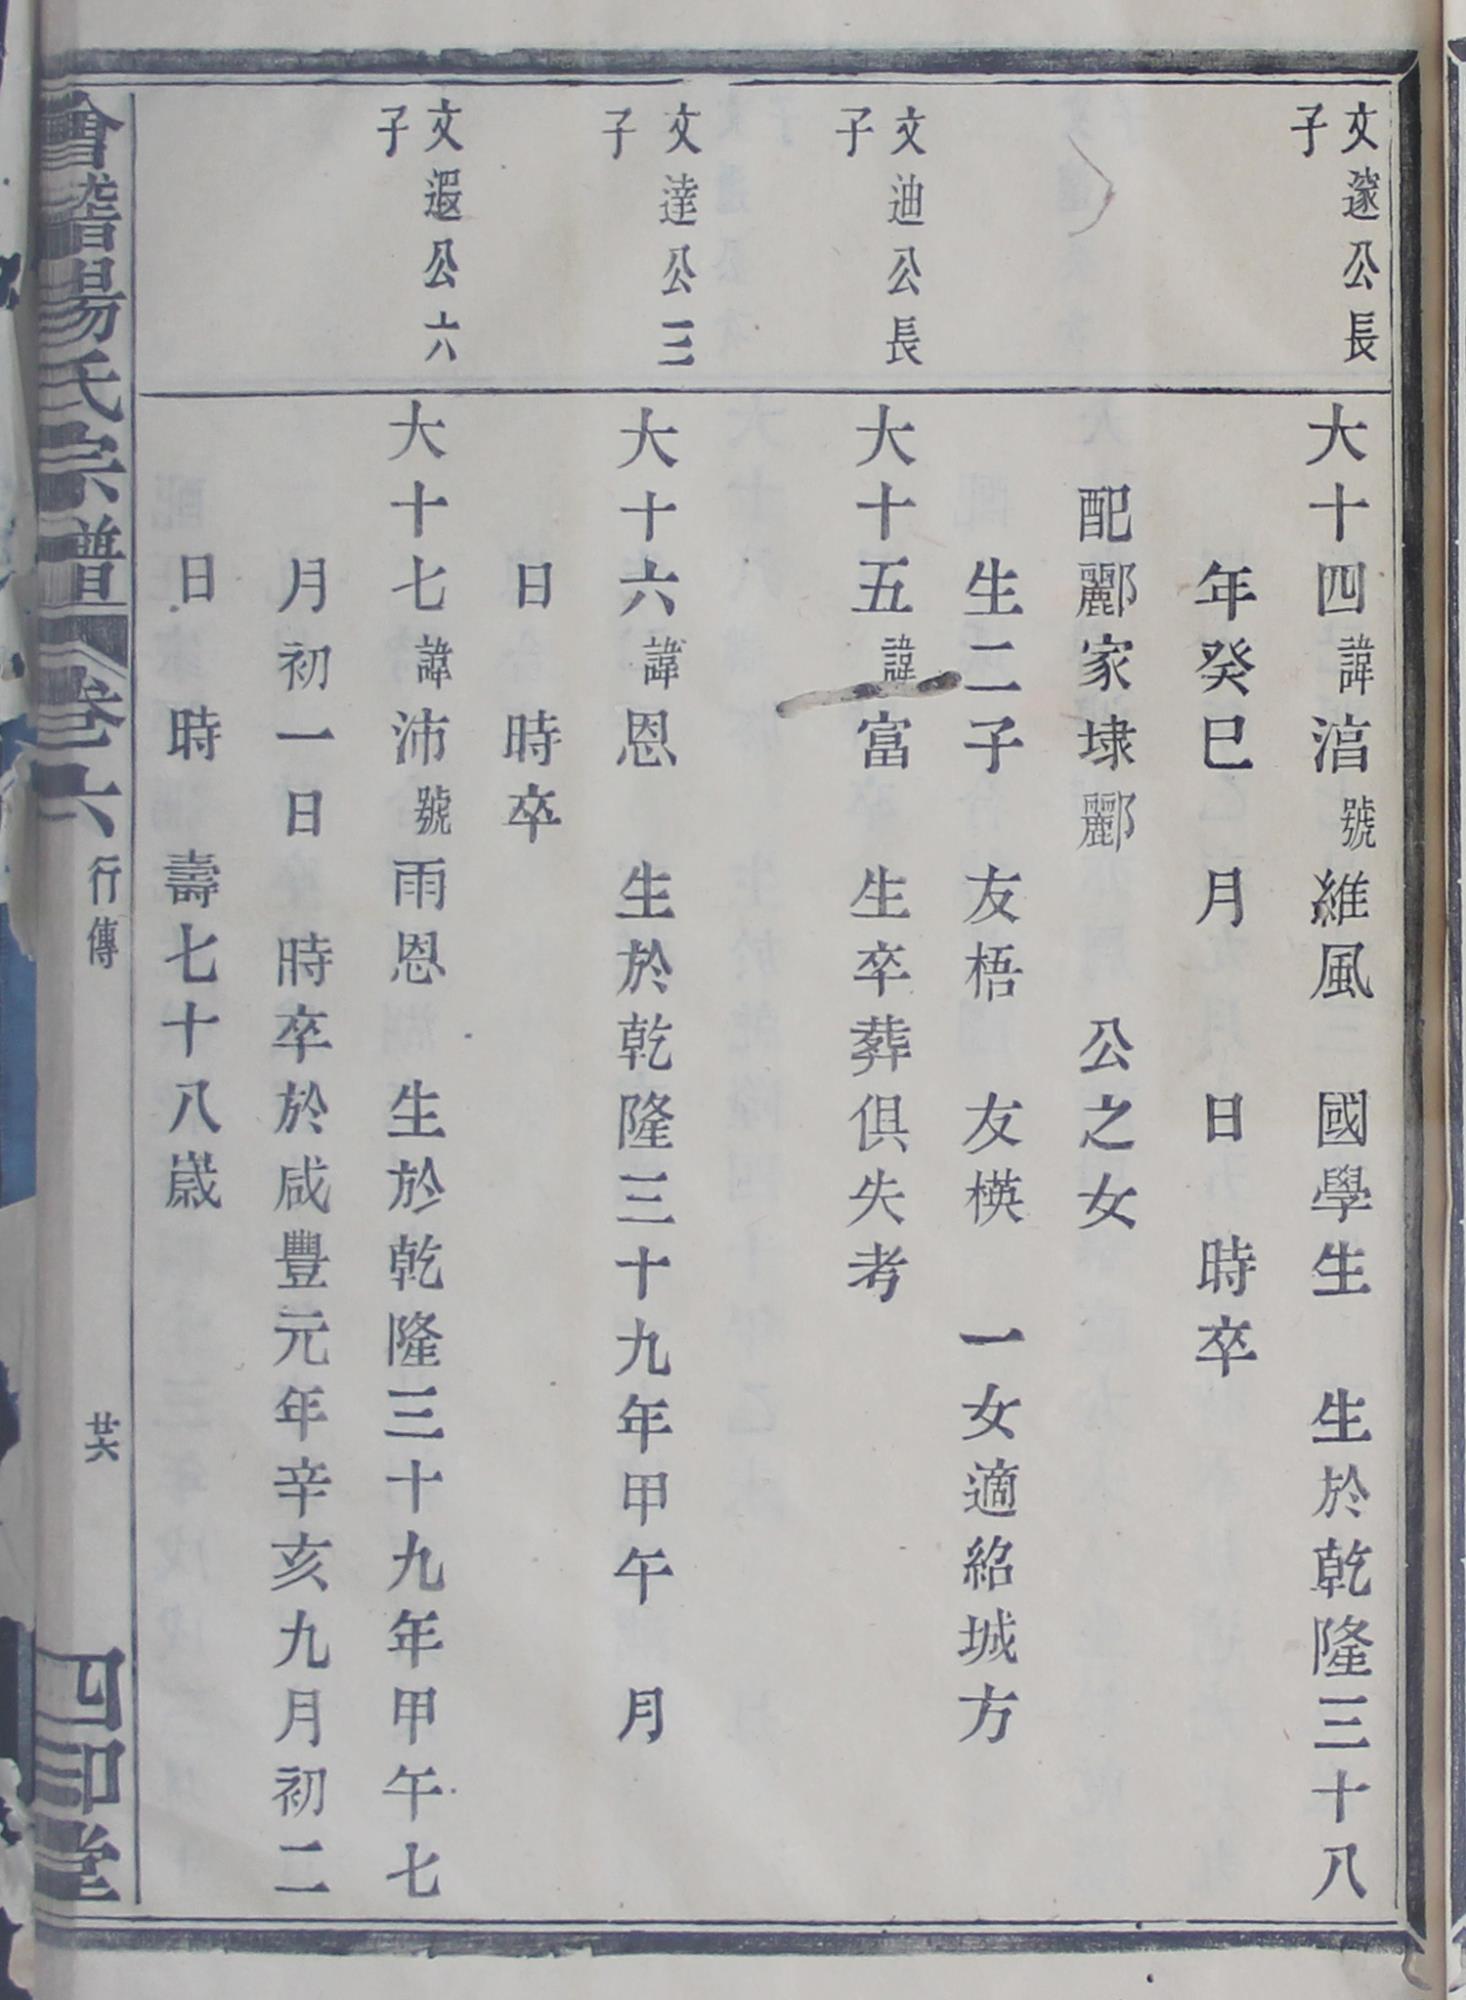 文邃公長
子
大十四諱湇號維風 國學生 生於乾隆三十八
年癸巳 月 日 時卒
配酈家埭酈 公之女
生二子 友梧 友模 一女適紹城方
文迪公長
子
大十五諱富 生卒葬俱失考
文達公三
子
大十六諱恩 生於乾隆三十九年甲午 月
日 時卒
文遐公六
子
大十七諱沛號雨恩 生於乾隆三十九年甲午七
月初一日 時卒於咸豐元年辛亥九月初二
日 時 壽七十八歲
會稽楊氏宗譜 卷六 行傳 廿六 四印堂